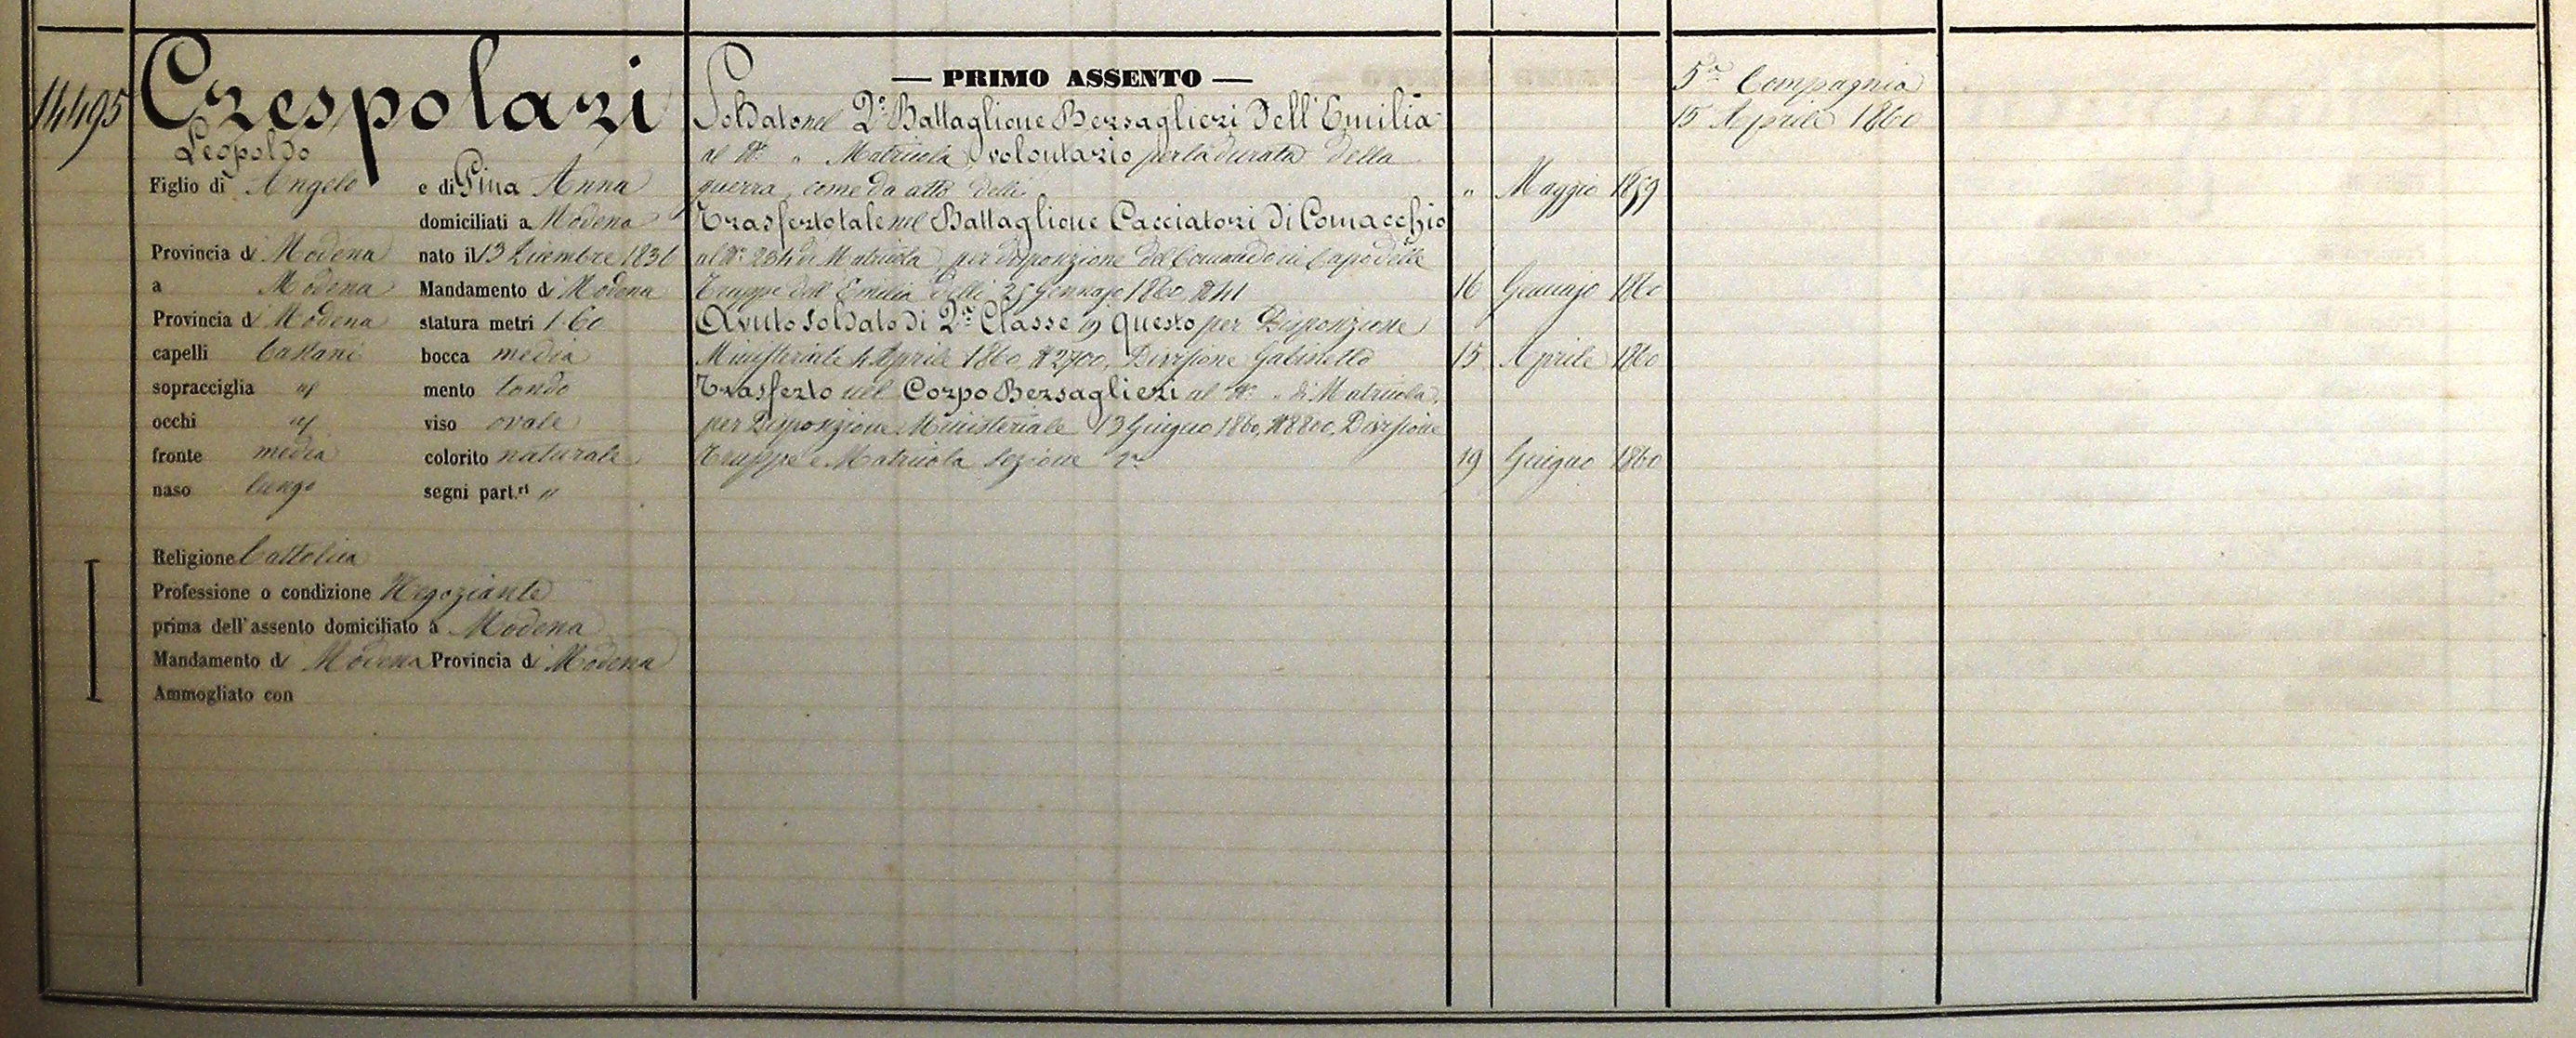 14495
Crespolari
Leopoldo
Figlio di Angelo e di Pina Anna
domiciliati a Modena
Provincia di Modena nato il 13 Dicembre 1836
a Modena Mandamento di Modena
Provincia di Modena statura metri 1.60
capelli Castani bocca media
sopracciglia id mento tondo
occhi id viso ovale
fronte media colorito naturale
naso lungo segni part.ri "
Religione Cattolica
Professione o condizione Negoziante
prima dell'assento domiciliato a Modena
Mandamento di Modena Provincia di Modena
Ammogliato con
— PRIMO ASSENTO —
Soldato nel 2° Battaglione Bersaglieri dell'Emilia
al N° " Matricola volontario per la durata della
guerra, come da atto delli " Maggio 1859
Trasferto tale nel Battaglione Cacciatori di Comacchio
al N° 254 di Matricola, per disposizione del Comando in Capo delle
Truppe dell'Emilia delli 25 Gennajo 1860, N° 41 16 Gennajo 1860
Avuto Soldato di 2ª Classe in questo per Disposizione
Ministeriale 4 Aprile 1860, N° 2700, Divisione Gabinetto 15 Aprile 1860
Trasferto nel Corpo Bersaglieri al N° " di Matricola,
per Disposizione Ministeriale 13 Giugno 1860, N° 8800, Divisione
Truppe e Matricola Sezione 2ª 19 Giugno 1860
5ª Compagnia
15 Aprile 1860